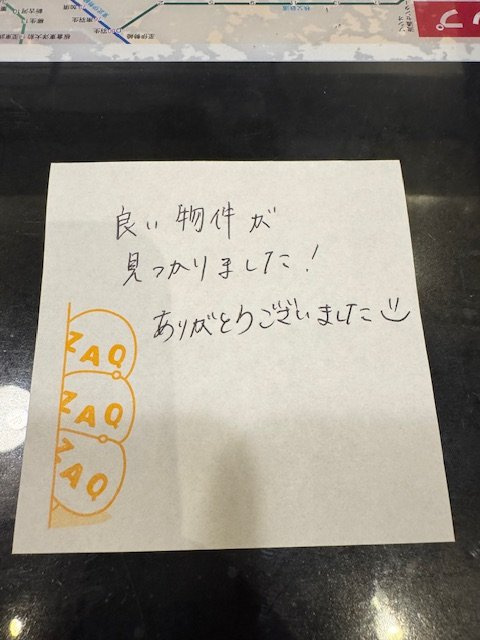 良い物件が
見つかりました!
ありがとうございました
ZAQ
ZAQ
ZAQ